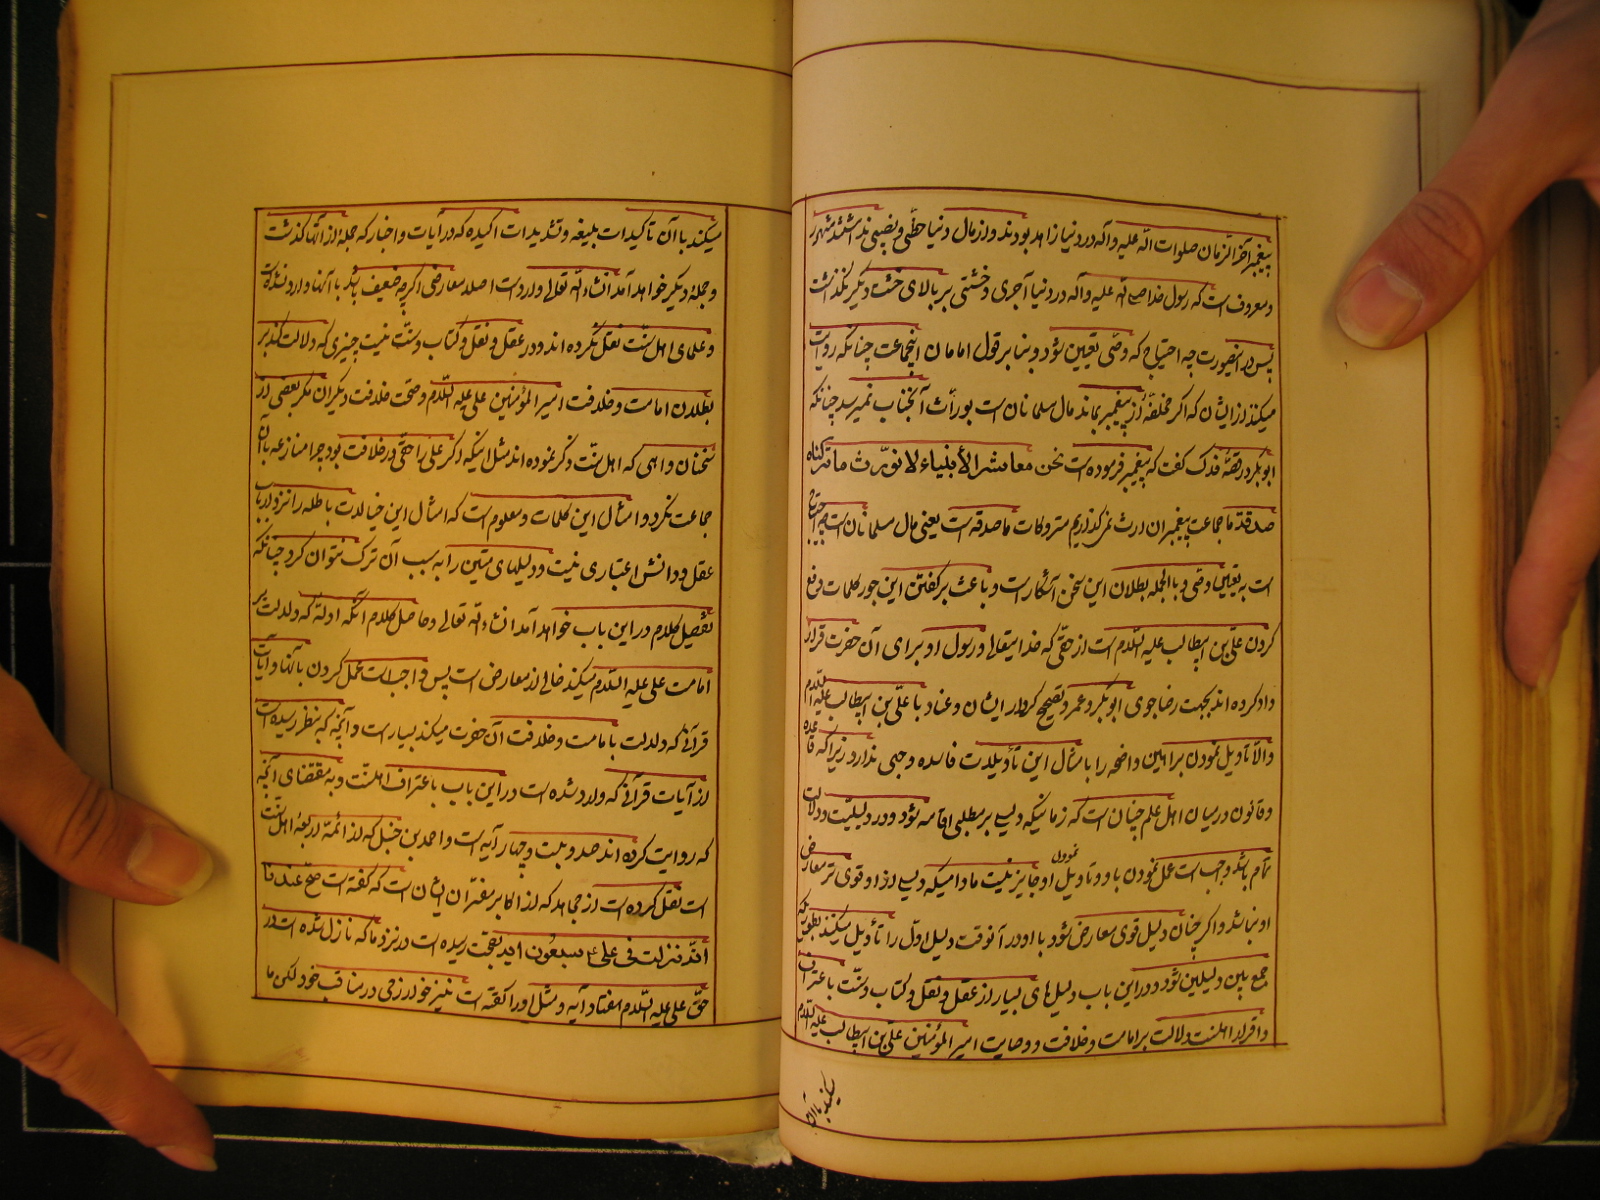 پیغمبر آخر الزمان صلوات الله علیه و آله در دنیا زاهد بودند و از مال دنیا حظّی و نصیبی نداشتند مشهور
و معروف است که رسول خدا صلی الله علیه و آله در دنیا آجری و خشتی بر بالای خشت دیگر نگذاشت
پس در اینصورت چه احتیاج که وصّی تعیین شود و بنا بر قول امامان اینجماعت چنانکه روات
میکنند از ایشان که اگر مخلفهٔ از پیغمبر بماند مال مسلمانان است بوراثت آنجناب نمیرسد چنانکه
ابوبکر در قصّهٔ فدک گفت که پیغمبر فرموده است نحن معاشر الأنبیاء لا نورّث ما ترکناه
صدقة ما جماعت پیغمبران ارث نمیگذاریم متروکات ما صدقه است یعنی مال مسلمانان است چه احتیاج
است به تعیین وصّی و بالجمله بطلان این سخن آشکار است و باعث بر گفتن این جور کلمات دفع
کردن علیّ بن ابیطالب علیه السّلام است از حقّی که خدایتعالی و رسول او برای آن حضرت قرار
داد کرده اند بجهت رضاجوی ابوبکر و عمر و تصحیح کردار ایشان و عناد با علیّ بن ابیطالب علیه السلام
والّا تأویل نمودن براهین واضحه را با مثال این تأویلات فاسده وجهی ندارد زیرا که قاعده
و قانون در میان اهل علم چنان است که زمانیکه دلیلی بر مطلبی اقامه شود و در دلیلیّت و دلالت
تمام باشد واجب است عمل نمودن باو و تأویل نمودن او جایز نیست مادامیکه دلیلی از او قوی تر معارض
او نباشد و اگر چنان دلیل قوی معارض شود با او در آنوقت دلیل اوّل را تأویل میکنند بطوریکه
جمع بین دلیلین شود و در این باب دلیلهای بسیار از عقل و نقل و کتاب و سنّت باعتراف
و اقرار اهلسنت دلالت بر امامت و خلافت و وصایت امیر المؤمنین علیّ بن ابیطالب علیه السّلام
میکنند با آن
میکنند با آن تأکیدات بلیغه و تشدیدات اکیده که در آیات و اخبار که جملهٔ از آنها گذشت
و جملهٔ دیگر خواهد آمد انشاء الله تعالی وارد است اصلا معارضی اگرچه ضعیف باشد با آنها وارد نشده است
و علمای اهل سنّت نقل نکرده اند و در عقل و نقل و کتاب و سنّت نیست چیزی که دلالت کند بر
بطلان امامت و خلافت امیر المؤمنین علی علیه السّلام و صحت خلافت دیگران مگر بعضی از
سخنان واهی که اهل سنّت ذکر نموده اند مثل اینکه اگر علی را حقّی در خلافت بود چرا منازعه با آن
جماعت نکرد و امثال این کلمات و معلوم است که امثال این خیالات باطله را نزد ارباب
عقل و دانش اعتباری نیست و دلیلهای متین را به سبب آن ترک نتوان کرد چنانکه
تفصیل کلام در این باب خواهد آمد انشاء الله تعالی و حاصل کلام آنکه ادلّه که دلالت بر
امامت علی علیه السّلام میکند خالی از معارض است پس واجبست عمل کردن بآنها و آیات
قرآنی که دلالت بامامت و خلافت آن حضرت میکند بسیار است و آنچه که بنظر رسیده است
از آیات قرآنی که وارد شده است در این باب باعتراف اهلسنّت و به مقتضای آنچه
که روایت کرده اند صد و بیست و چهار آیه است و احمد بن حنبل که از ائمّه اربعه اهل سنّت
است نقل کرده است از مجاهد که از اکابر مفسّران ایشان است که گفته است صحّ عندنا
انّه نزلت فی علی ع سبعون آیة بصحّت رسیده است در نزد ما که نازل شده است در
حقّ علی علیه السّلام هفتاد آیه و مثل او را گفته است نیز خوارزمی در مناقب خود لکن ما